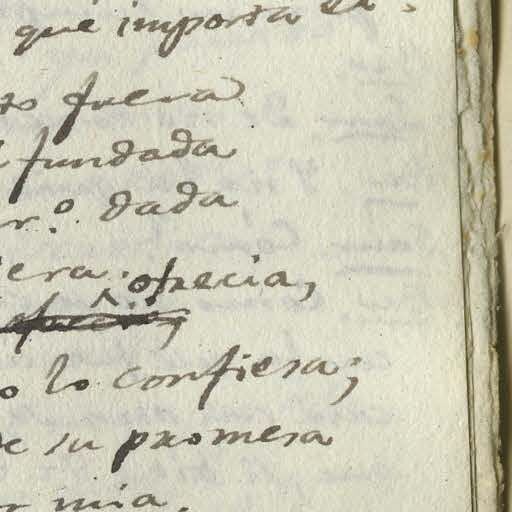 que importa
fuera
fundada
r.º dada
era. ofrecia,
lo confiesa;
de su promesa
mia.